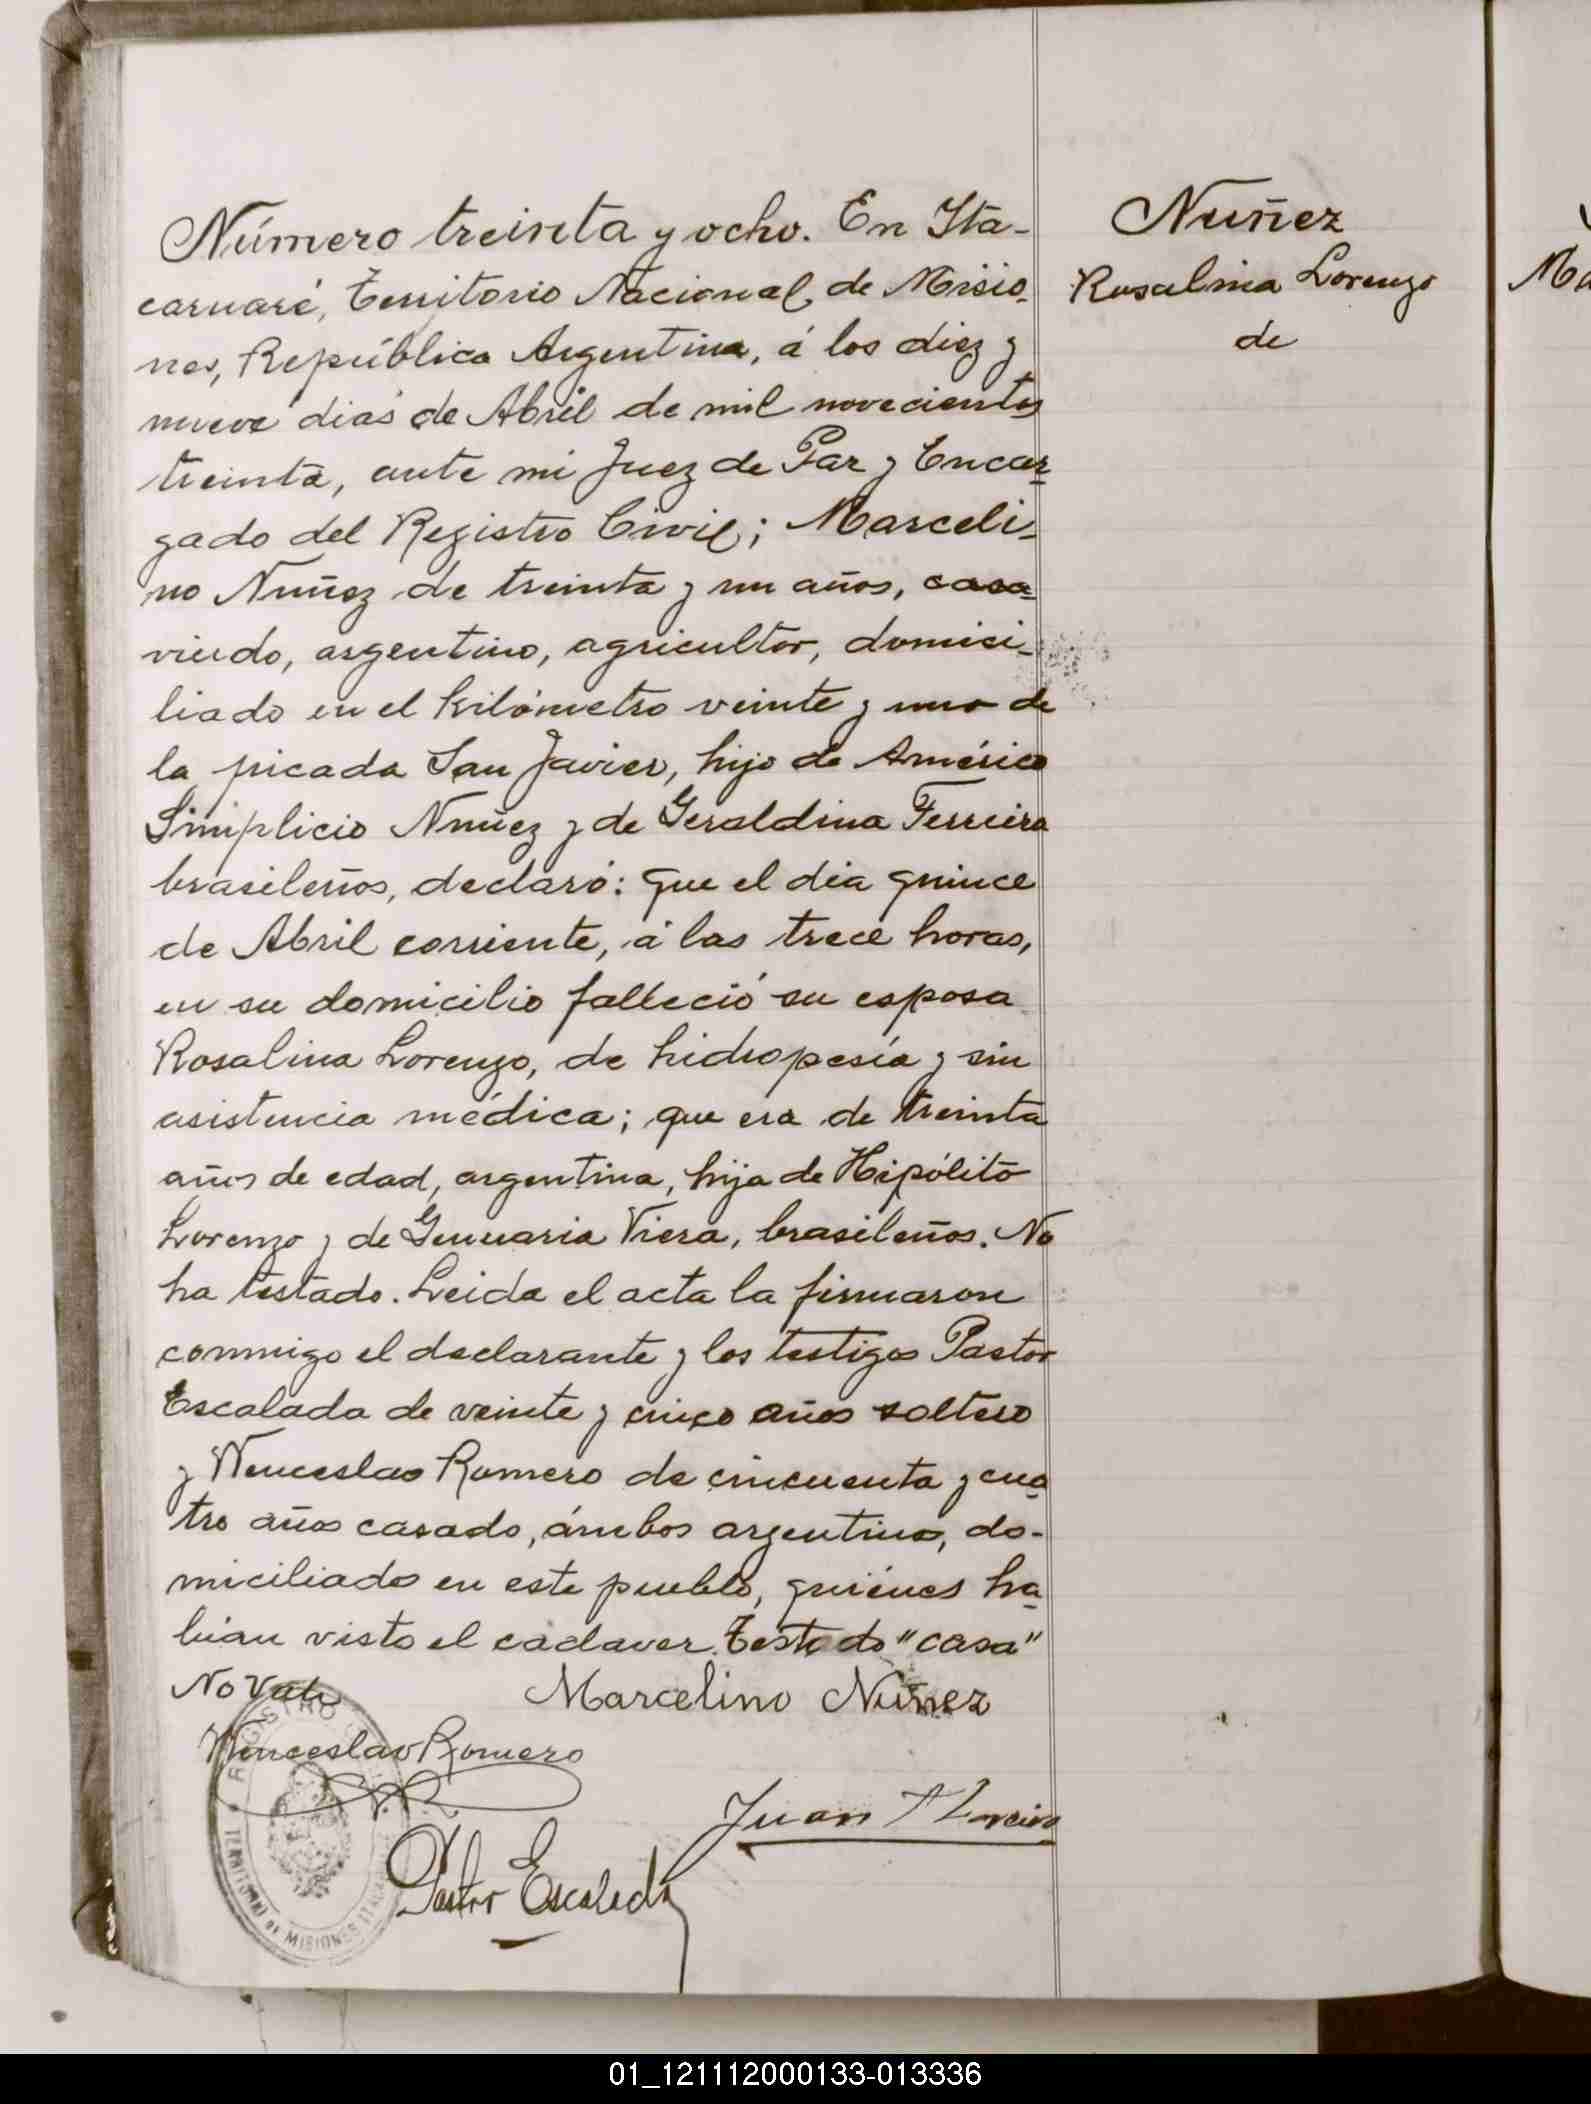 Número treinta y ocho. En Ita-
caruaré, Territorio Nacional de Misio-
nes, República Argentina, á los diez y
nueve dias de Abril de mil novecientos
treinta, ante mi Juez de Paz y Encar-
gado del Registro Civil; Marceli-
no Nuñez de treinta y un años, casa-
viudo, argentino, agricultor, domici-
liado en el kilómetro veinte y uno de
la picada San Javier, hijo de Américo
Simplicio Nuñez y de Geraldina Ferreira
brasileños, declaró: que el dia quince
de Abril corriente, á las trece horas,
en su domicilio falleció su esposa
Rosalina Lorenzo, de hidropesía y sin
asistencia médica; que era de treinta
años de edad, argentina, hija de Hipólito
Lorenzo y de Genuaria Viera, brasileños. No
ha testado. Leida el acta la firmaron
conmigo el declarante y los testigos Pastor
Escalada de veinte y cinco años soltero
y Wenceslao Romero de cincuenta y cua-
tro años casado, ámbos argentinos, do-
miciliados en este pueblo, quiénes ha-
bian visto el cadaver. Testado "casa"
No Vale
Marcelino Nuñez
Wenceslao Romero
Juan
Pastor Escalada
REGISTRO
TERRITORIO DE MISIONES
Nuñez
Rosalina Lorenzo
de
Ma
01_121112000133-013336